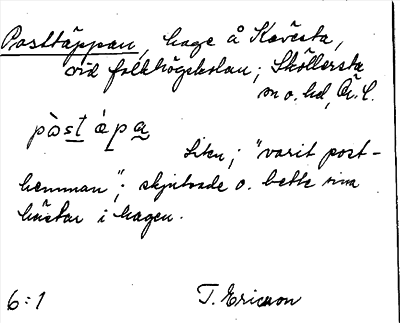 Posttäppan, hage å Kävesta,
vid folkhögskolan; Sköllersta
sn o. hd, Ör. l.
pòstápa
liten; "varit post-
hemman"; skjutsade o. bette sina
hästar i hagen.
6:1 T. Ericsson